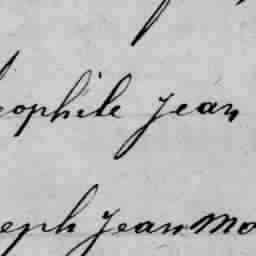 eophile Jean
eph Jean Mo